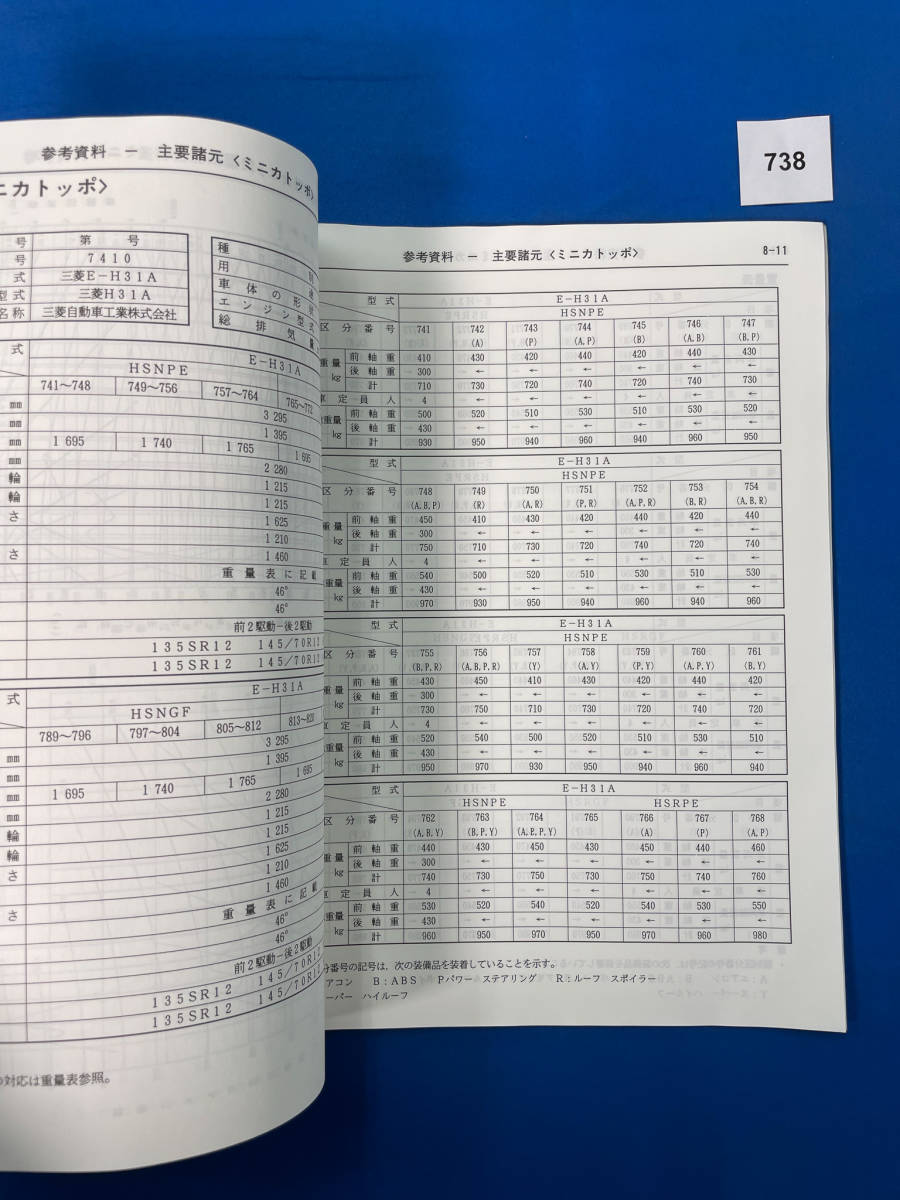 738
参考資料 － 主要諸元〈ミニカトッポ〉
ニカトッポ〉
号 第 号
号 7410
式 三菱E－H31A
型式 三菱H31A
名称 三菱自動車工業株式会社
種
用
車体の形状
エンジン型式
総排気量
式 E－H31A
HSNPE
741～748 749～756 757～764 765～772
mm 3 295
mm 1 395
mm 1 695 1 740 1 765 1 695
mm 2 280
輪 1 215
輪 1 215
さ 1 625
1 210
さ 1 460
重量表に記載
46°
46°
前2駆動－後2駆動
135SR12 145/70R12
135SR12 145/70R12
式 E－H31A
HSNGF
789～796 797～804 805～812 813～820
mm 3 295
mm 1 395
mm 1 695 1 740 1 765 1 695
mm 2 280
輪 1 215
輪 1 215
さ 1 625
1 210
さ 1 460
重量表に記載
46°
46°
前2駆動－後2駆動
135SR12 145/70R12
135SR12 145/70R12
対応は重量表参照。
参考資料 － 主要諸元〈ミニカトッポ〉 8-11
型式 E－H31A
HSNPE
区分番号 741 742 743 744 745 746 747
(A) (P) (A, P) (B) (A, B) (B, P)
重量 前軸重 410 430 420 440 420 440 430
kg 後軸重 300 ← ← ← ← ← ←
計 710 730 720 740 720 740 730
車定員 人 4 ← ← ← ← ← ←
重量 前軸重 500 520 510 530 510 530 520
kg 後軸重 430 ← ← ← ← ← ←
計 930 950 940 960 940 960 950
型式 E－H31A
HSNPE
区分番号 748 749 750 751 752 753 754
(A, B, P) (R) (A, R) (P, R) (A, P, R) (B, R) (A, B, R)
重量 前軸重 450 410 430 420 440 420 440
kg 後軸重 300 ← ← ← ← ← ←
計 750 710 730 720 740 720 740
車定員 人 4 ← ← ← ← ← ←
重量 前軸重 540 500 520 510 530 510 530
kg 後軸重 430 ← ← ← ← ← ←
計 970 930 950 940 960 940 960
型式 E－H31A
HSNPE
区分番号 755 756 757 758 759 760 761
(B, P, R) (A, B, P, R) (Y) (A, Y) (P, Y) (A, P, Y) (B, Y)
重量 前軸重 430 450 410 430 420 440 420
kg 後軸重 300 ← ← ← ← ← ←
計 730 750 710 730 720 740 720
車定員 人 4 ← ← ← ← ← ←
重量 前軸重 520 540 500 520 510 530 510
kg 後軸重 430 ← ← ← ← ← ←
計 950 970 930 950 940 960 940
型式 E－H31A
HSNPE HSRPE
区分番号 762 763 764 765 766 767 768
(A, B, Y) (B, P, Y) (A, B, P, Y) (A) (P) (A, P)
重量 前軸重 440 430 450 430 450 440 460
kg 後軸重 300 ← ← ← ← ← ←
計 740 730 750 730 750 740 760
車定員 人 4 ← ← ← ← ← ←
重量 前軸重 530 520 540 520 540 530 550
kg 後軸重 430 ← ← ← ← ← ←
計 960 950 970 950 970 960 980
分番号の記号は、次の装備品を装着していることを示す。
アコン B：ABS Pパワー ステアリング R：ルーフ スポイラー
ーパー ハイルーフ